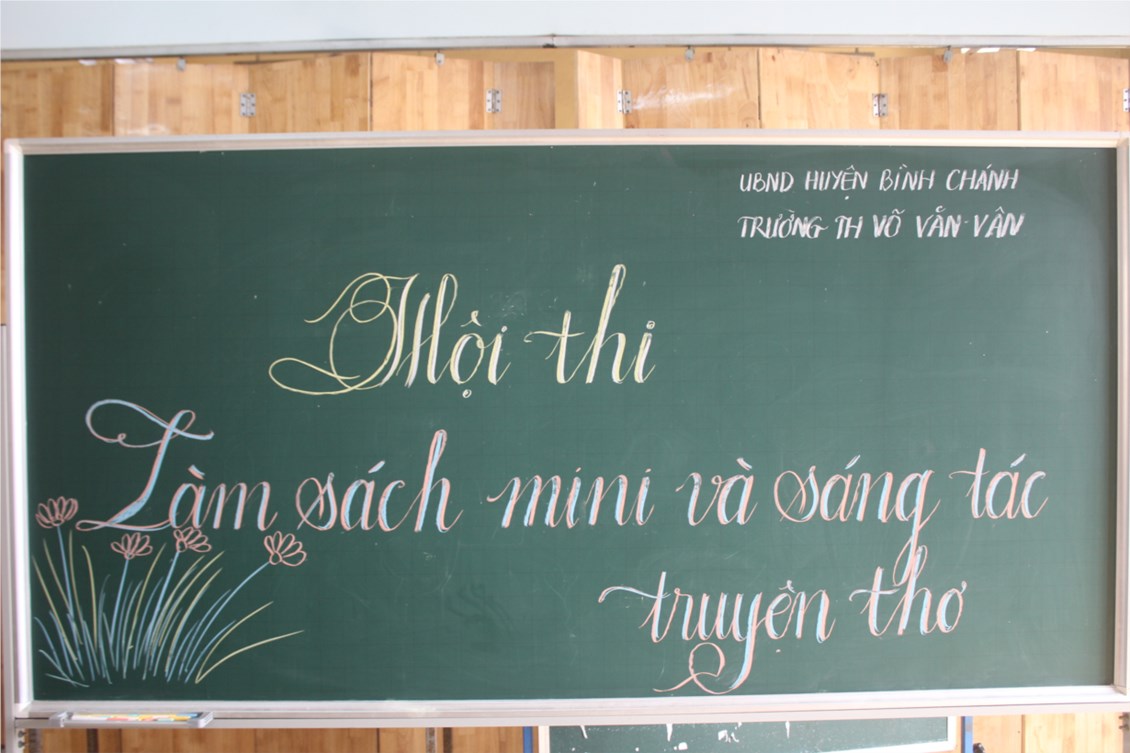 UBND HUYỆN BÌNH CHÁNH
TRƯỜNG TH VÕ VĂN VÂN
Hội thi
Làm sách mini và sáng tác
truyện thơ